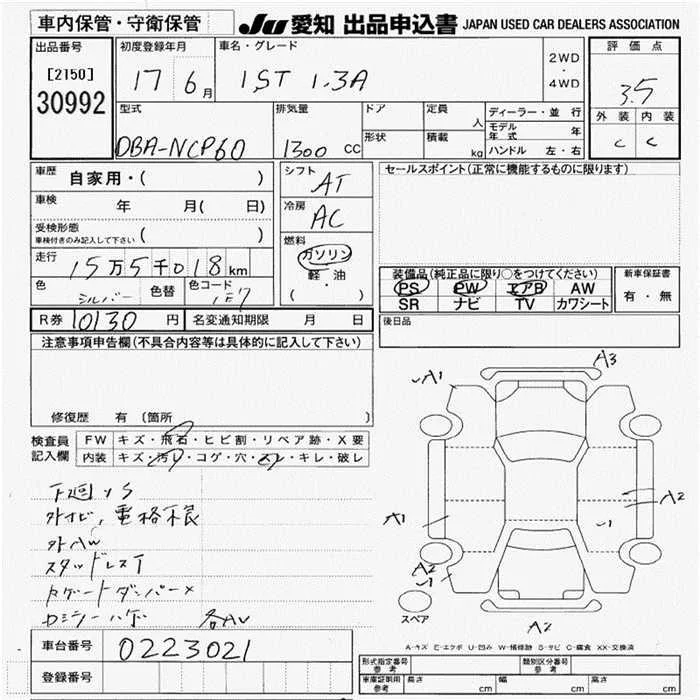 車内保管・守衛保管 JU 愛知 出品申込書 JAPAN USED CAR DEALERS ASSOCIATION
出品番号 初度登録年月 車名・グレード 2WD・4WD 評価点
[2150] 17 6月 IST 1.3A 3.5
30992
型式 排気量 ドア 定員 人 ディーラー・並行 外装 内装
DBA-NCP60 1300 CC 形状 積載 kg モデル年式 年 C C
ハンドル 左・右
車歴 自家用・( ) シフト AT セールスポイント(正常に機能するものに限ります)
車検 年 月( 日) 冷房 AC
受検形態 ( )
車検付きのみ記入して下さい
走行 15万5千018km 燃料 ガソリン 軽・油 ( ・ )
装備品(純正品に限り○をつけてください) 新車保証書
色 シルバー 色替 色コード 1E7 PS PW エアB AW 有・無
SR ナビ TV カワシート
R券 10130 円 名変通知期限 月 日 後日品
注意事項申告欄(不具合内容等は具体的に記入して下さい)
修復歴 有 (箇所 )
検査員記入欄 FW キズ・飛石・ヒビ割・リペア跡・X要
内装 キズ・汚レ・コゲ・穴・スレ・キレ・破レ
下廻りS
外ナビ、電格不良
外AW
スタッドレスT
Rゲートダンパー×
各AU
A3
A1
A2
A1
A2
スペア
A2
A-キズ E-エクボ U-凹み W-補修跡 S-サビ C-腐食 XX-交換済
車台番号 0223021
登録番号
形式指定番号 参考 類別区分番号 参考
車庫証明用 参考 長さ cm 幅 cm 高さ cm